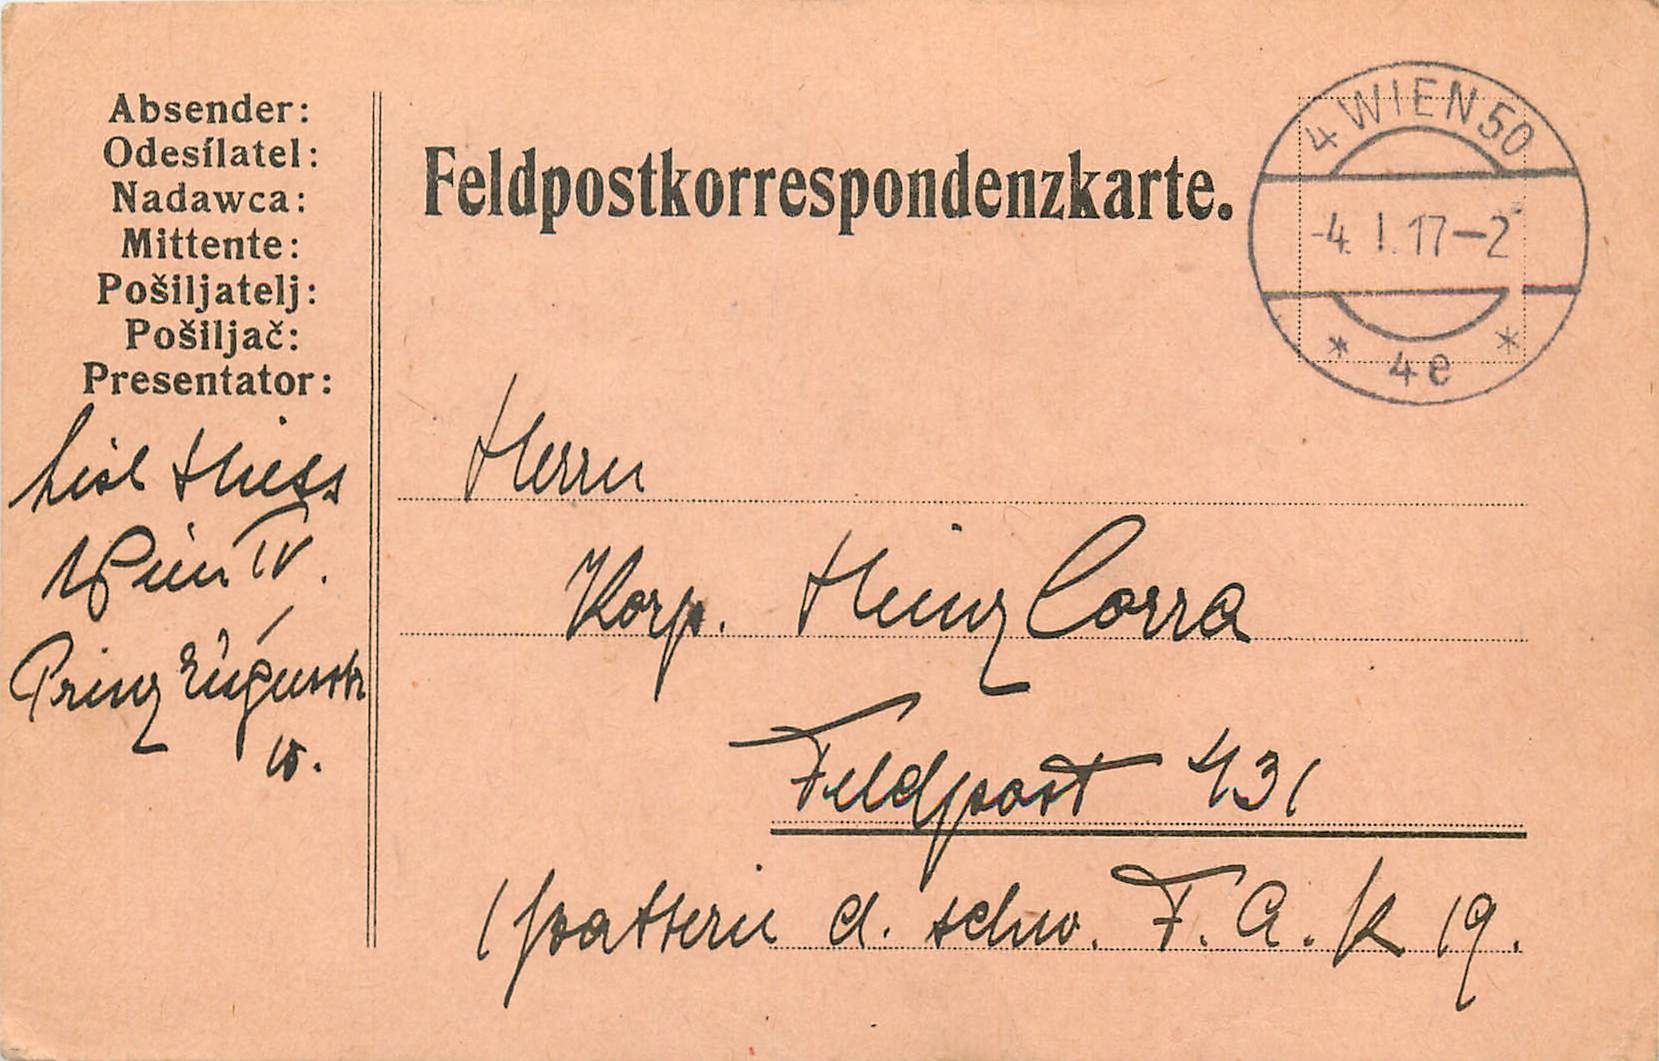 Absender:
Odesílatel:
Nadawca:
Mittente:
Pošiljatelj:
Pošiljač:
Presentator:
Feldpostkorrespondenzkarte.
4 WIEN 50
-4. I. 17-2
* 4e *
Lisl
Wien IV.
Prinz Eugenstr
Herrn
Korp. Heinz Corra
Feldpost 431
1 batterie d. schw. F. A. R 19.